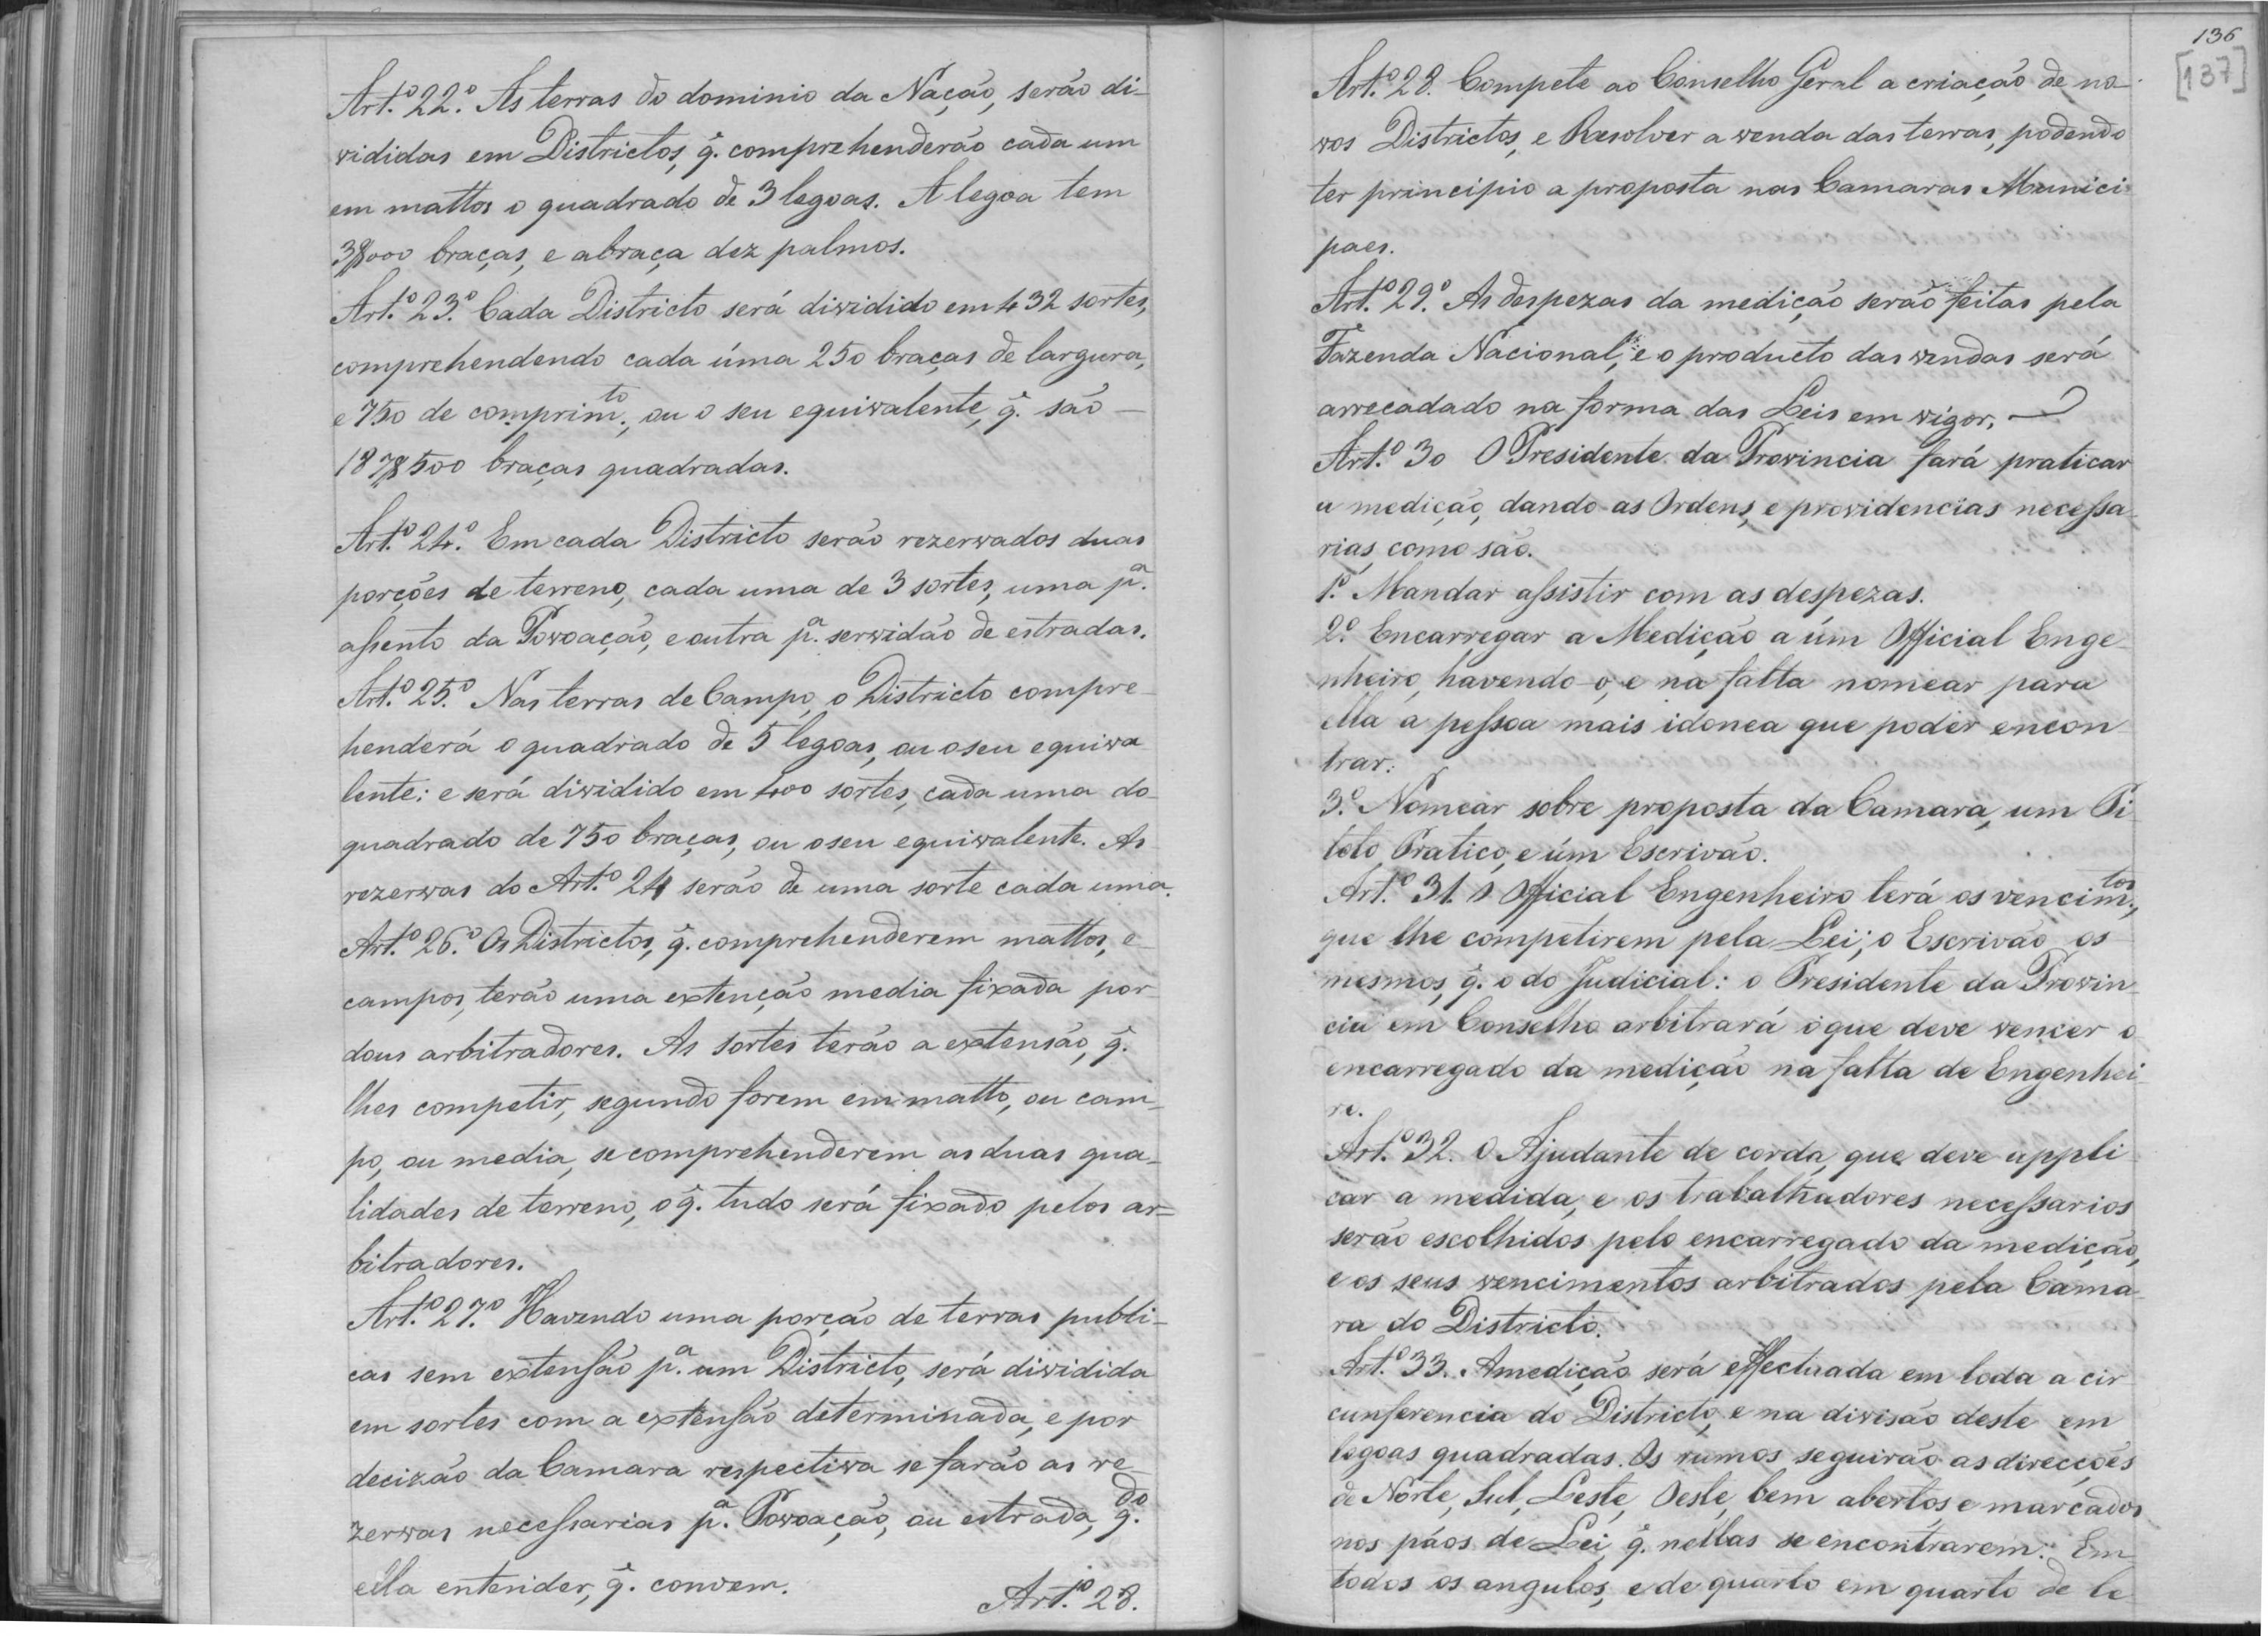 Art.º 22.º As terras do dominio da Nação, serão di-
vididas em Districtos, q̃. comprehenderão cada um
em mattos o quadrado de 3 legoas. A legoa tem
3$000 braças, e a braça dez palmos.
Art.º 23.º Cada Districto será dividido em 432 sortes,
comprehendendo cada úma 250 braças de largura,
e 750 de comprim.to, ou o seu equivalente, q̃. são —
187$500 braças quadradas.
Art.º 24.º Em cada Districto serão rezervados duas
porções de terreno, cada uma de 3 sortes, uma p.a
assento da Povoação, e outra p.a servidão de estradas.
Art.º 25.º Nas terras de Campo, o Districto compre-
henderá o quadrado de 5 legoas, ou o seu equiva
lente; e será dividido em 400 sortes, cada uma do
quadrado de 750 braças, ou o seu equivalente. As
rezervas do Art.º 24 serão de uma sorte cada uma.
Art.º 26.º Os Districtos, q̃. comprehenderem mattos, e
campos, terão uma extenção media fixada por
dous arbitradores. As sortes terão a extensão, q̃.
lhes competir, segundo forem em matto, ou cam-
po, ou media, se comprehenderem as duas qua-
lidades de terreno, o q̃. tudo será fixado pelos ar=
bitradores.
Art.º 27.º Havendo uma porção de terras publi-
cas sem extensão p.a um Districto, será dividida
em sortes com a extensão determinada, e por
decizão da Camara respectiva se farão as re-
zervas necessarias p.a Povoação, ou estrada, q.do
ella entender, q̃. convem.
Art.º 28.
136
[137]
Art.º 28. Compete ao Conselho Geral a criação de no-
vos Districtos, e Resolver a venda das terras, podendo
ter principio a proposta nas Camaras Munici-
paes.
Art.º 29.º As despezas da medição serão feitas pela
Fazenda Nacional, e o producto das vendas será
arrecadado na forma das Leis em vigor.
Art.º 30 O Presidente da Provincia fará praticar
a medição, dando as Ordens, e providencias necessa-
rias, como são.
1.º Mandar assistir com as despezas.
2.º Encarregar a Medição a úm Official Enge-
nheiro, havendo-o, e na falta nomear para
ella a pessoa mais idonea que poder encon
trar.
3.º Nomear sobre proposta da Camara, um Pi
loto Pratico, e úm Escrivão.
Art.º 31. O Official Engenheiro terá os vencim.tos,
que lhe competirem pela Lei; o Escrivão os
mesmos, q̃. o do Judicial: o Presidente da Provin-
cia em Conselho arbitrará o que deve vencer o
encarregado da medição na falta de Engenhei-
ro.
Art.º 32. O Ajudante de corda, que deve appli-
car a medida, e os trabalhadores necessarios
serão escolhidos pelo encarregado da medição,
e os seus vencimentos arbitrados pela Cama-
ra do Districto.
Art.º 33. A medição será effectuada em toda a cir
cunferencia do Districto, e na divisão deste em
legoas quadradas. Os rumos seguirão as direcções
de Norte, Sul, Leste, Oeste, bem abertos, e marcados
nos páos de Lei, q̃. nellas se encontrarem. Em
todos os angulos, e de quarto em quarto de le